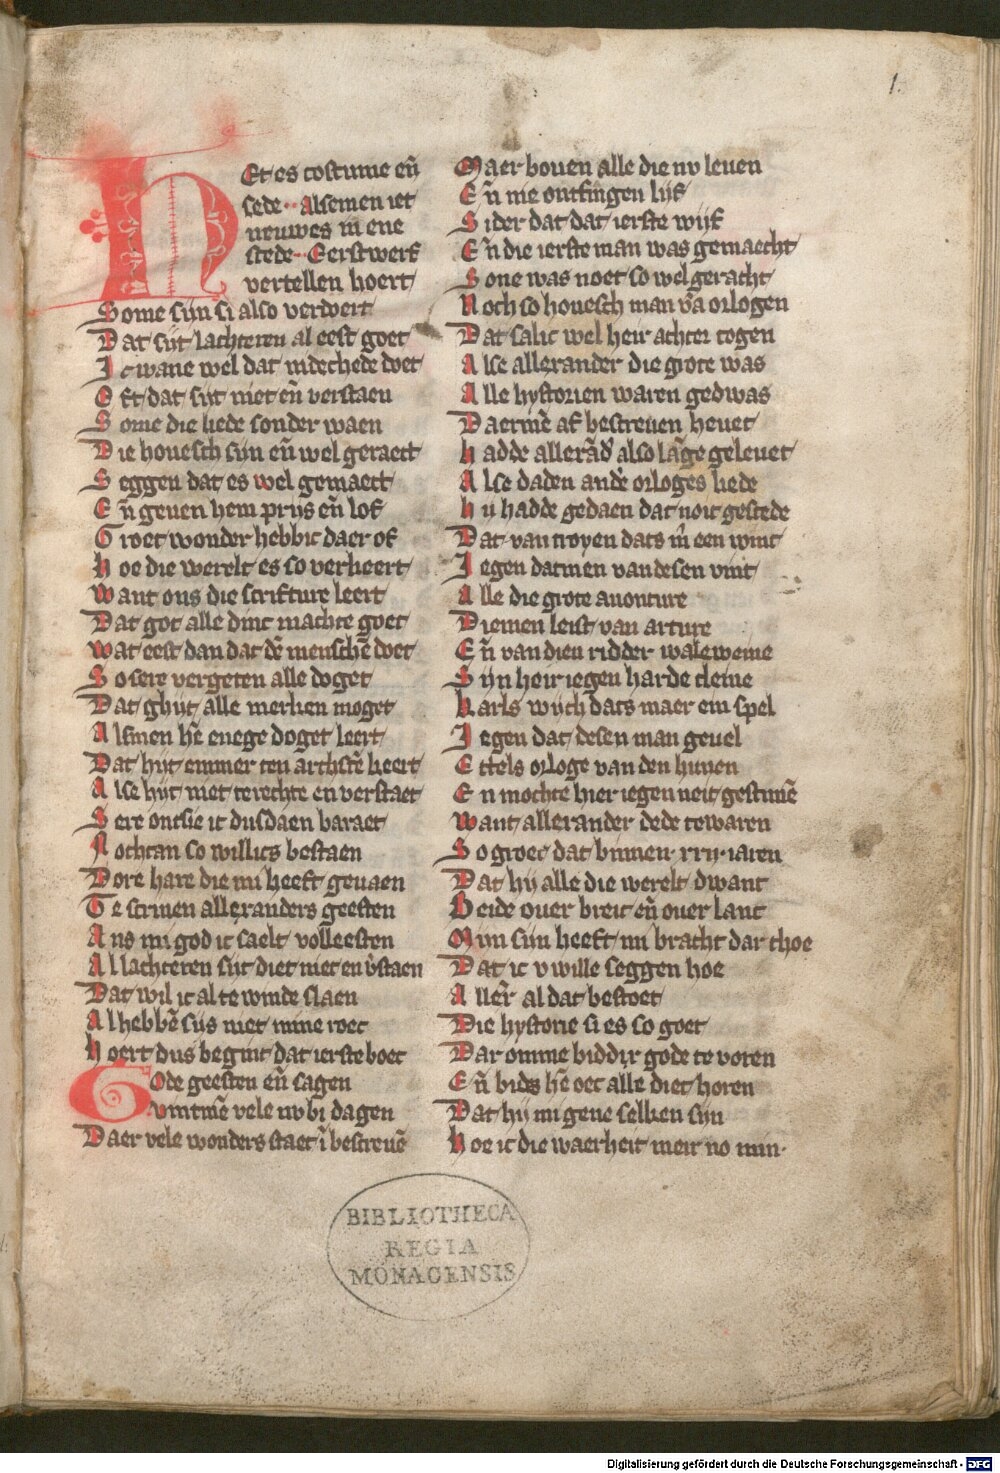 1.
Het es costume en̄
sede·· Alsemen iet
nieuwes in ene
stede·· Eerstwerf
vertellen hoert
Some sijn si also verdoert
Dat sijt lachteren al eest goet
Ic wane wel dat indechede doet
Oft dat sijt niet en̄ verstaen
Some die liede sonder waen
Die houesch sijn en̄ wel geraect
Seggen dat es wel gemaect
En̄ geuen hem prijs en̄ lof
Groet wonder hebbic daer of
Hoe die werelt es so verkeert
Want ons die scrifture leert
Dat got alle dinc machte goet
Wat eest dan dat dē menschē doet
So sere vergeten alle doget
Dat ghijt alle merken moget
Alsmen hē enege doget leert
Dat hijt emmer ten archstē keert
Alse hijt niet te rechte en verstaet
Sere ontsie ic dusdaen baraet
Nochtan so willics bestaen
Dore hare die mi heeft geuaen
Te scriuen allexanders geesten
Ans mi god ic saelt volleesten
Al lachteren sijt diet niet en v̄staen
Dat wil ic al te winde slaen
Al hebbē sijs niet mine roec
Hoert dus begint dat ierste boec
Gode geesten en̄ sagen
Vintmē vele nv bi dagen
Daer vele wonders staet ī bescreuē
Maer bouen alle die nv leuen
En̄ nie ontfingen lijf
Sider dat dat ierste wijf
En̄ die ierste man was gemaecht
Sone was noet so wel geracht
Noch so houesch man vā orlogen
Dat salic wel hier achter togen
Alse allexander die grote was
Alle hystorien waren gedwas
Daermē af bescreuen heuet
Hadde allexād' also lāge geleuet
Alse daden andē orloges liede
Hij hadde gedaen dat noit gescede
Dat van troyen dats m̄ een wint
Jegen datmen van desen vint
Alle die grote auonture
Diemen leist van arture
En̄ van dien ridder waleweine
Sijn hier iegen harde cleine
Karls wijch dats maer ein spel
Jegen dat desen man geuel
Ettels orloge van den hunen
En mochte hier iegen neit gestunē
Want allexander dede te waren
So groec dat binnen· xij· iaren
Dat hij alle die werelt dwanc
Beide ouer breit en̄ ouer lanc
Min sijn heeft mi bracht dar thoe
Dat ic v wille seggen hoe
Allex̄ al dat bestoet
Die hystorie si es so goet
Dar omme biddix gode te voren
En̄ bids hē oec alle diet horen
Dat hij mi geue selken sijn
Hoe ic die waerheit meir no min·
BIBLIOTHECA
REGIA
MONACENSIS
Digitalisierung gefördert durch die Deutsche Forschungsgemeinschaft - DFG